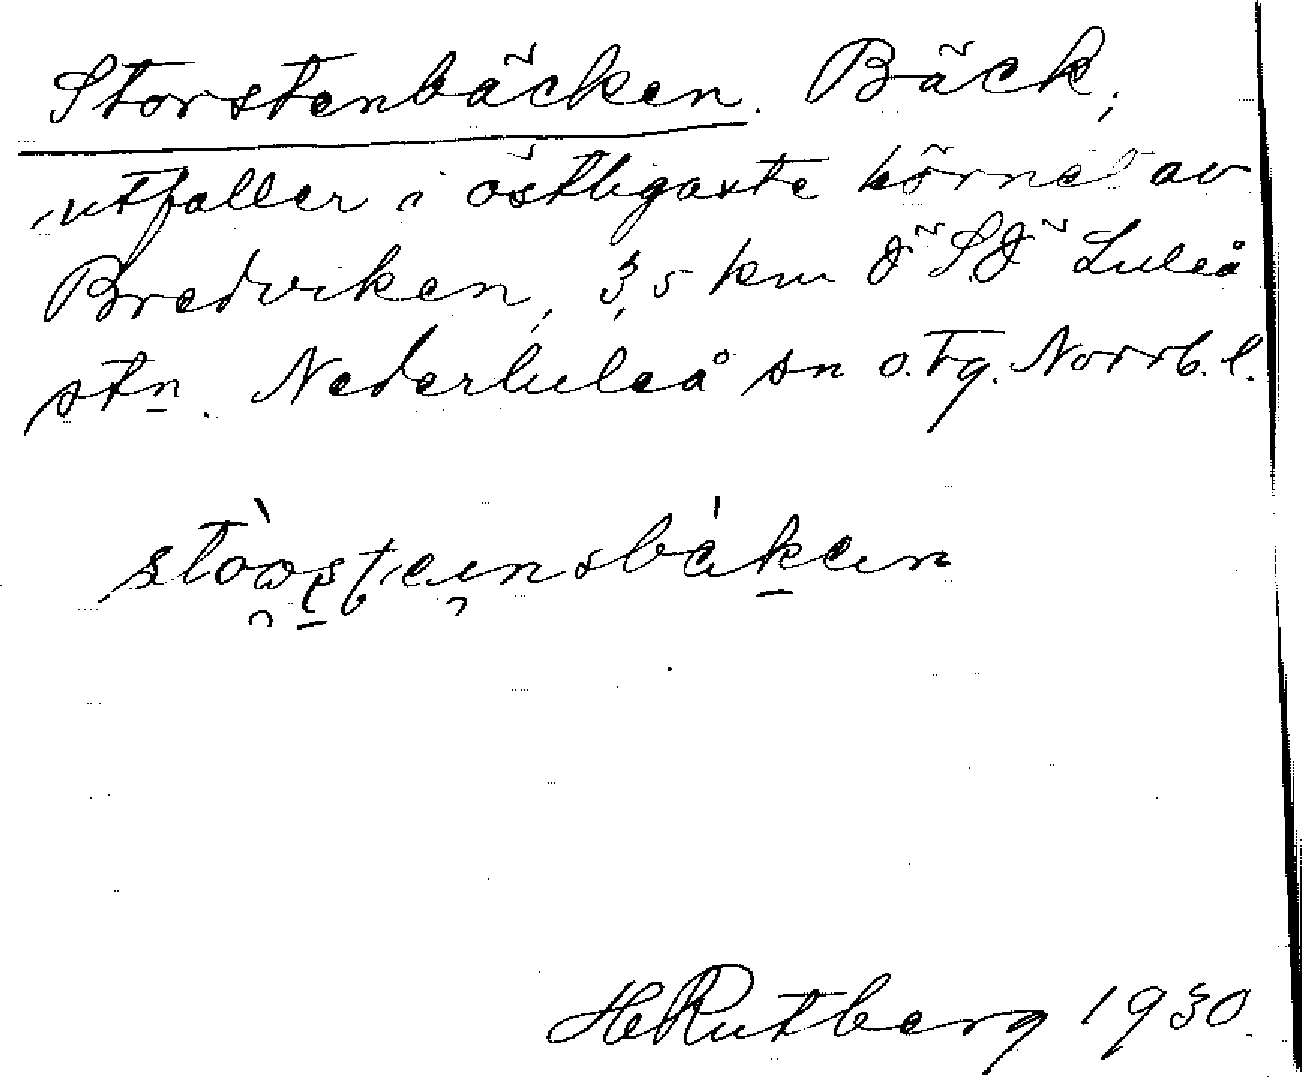 Storstenbäcken. Bäck,
utfaller i östligaste hörnet av
Bredviken, 3,5 km ÖSÖ Luleå
stn. Nederluleå sn o. tg. Norrb. l.
H Rutberg 1930.